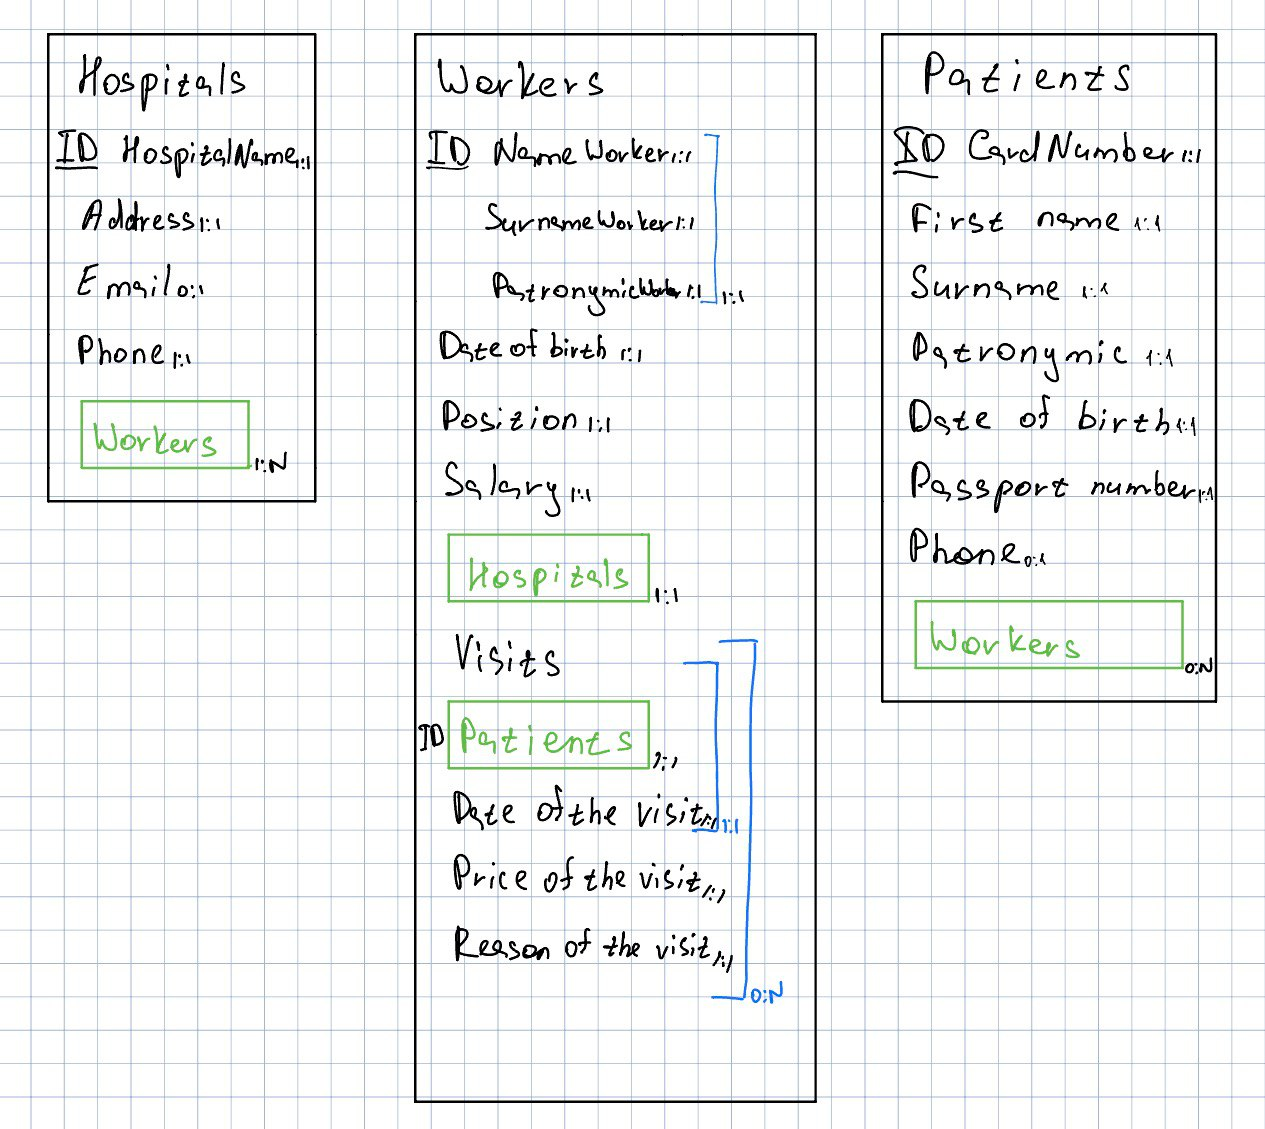 Hospitals
ID HospitalName 1:1
Address 1:1
Email 0:1
Phone 1:1
Workers 1:N
Workers
ID Name Worker 1:1
SurnameWorker 1:1
PatronymicWorker 1:1 1:1
Date of birth 1:1
Position 1:1
Salary 1:1
Hospitals 1:1
Visits
ID Patients 1:1
Date of the visit 1:1 1:1
Price of the visit 1:1
Reason of the visit 1:1
0:N
Patients
ID Card Number 1:1
First name 1:1
Surname 1:1
Patronymic 1:1
Date of birth 1:1
Passport number 1:1
Phone 0:1
Workers 0:N